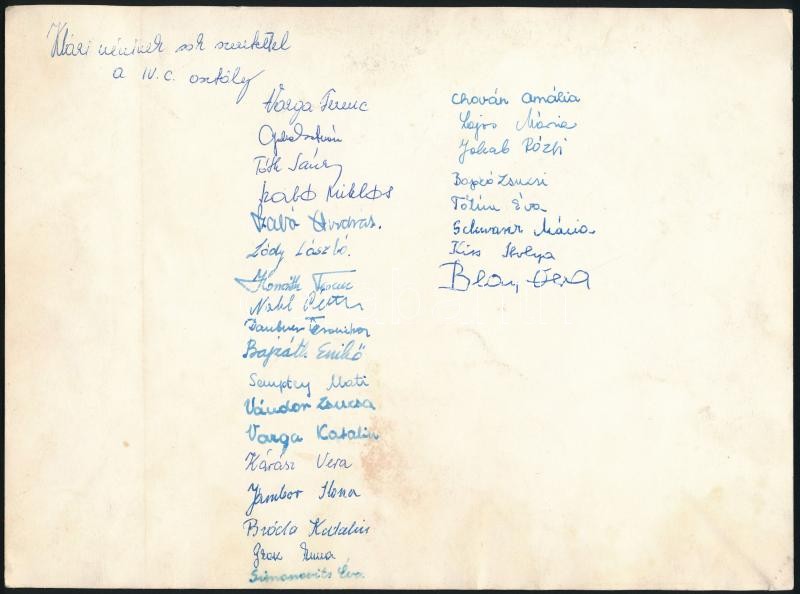 Klári néninek sok szeretettel
a IV. c. osztály
Varga Ferenc
István
Tóth
Szabó Miklós
Szabó András.
Zódy László.
Horváth Ferenc
Péter
Daubner
Bajzáth Enikő
Semptey Mati
Vándor Zsuzsa
Varga Katalin
Kárász Vera
Jámbor Ilona
Bróda Katalin
Anna
Simonovits Éva.
Chován Amália
Lajos Mária
Jakab Rózsi
Bajkó Zsuzsi
Tóbiás Éva
Schwarcz Mária
Kiss Ibolya